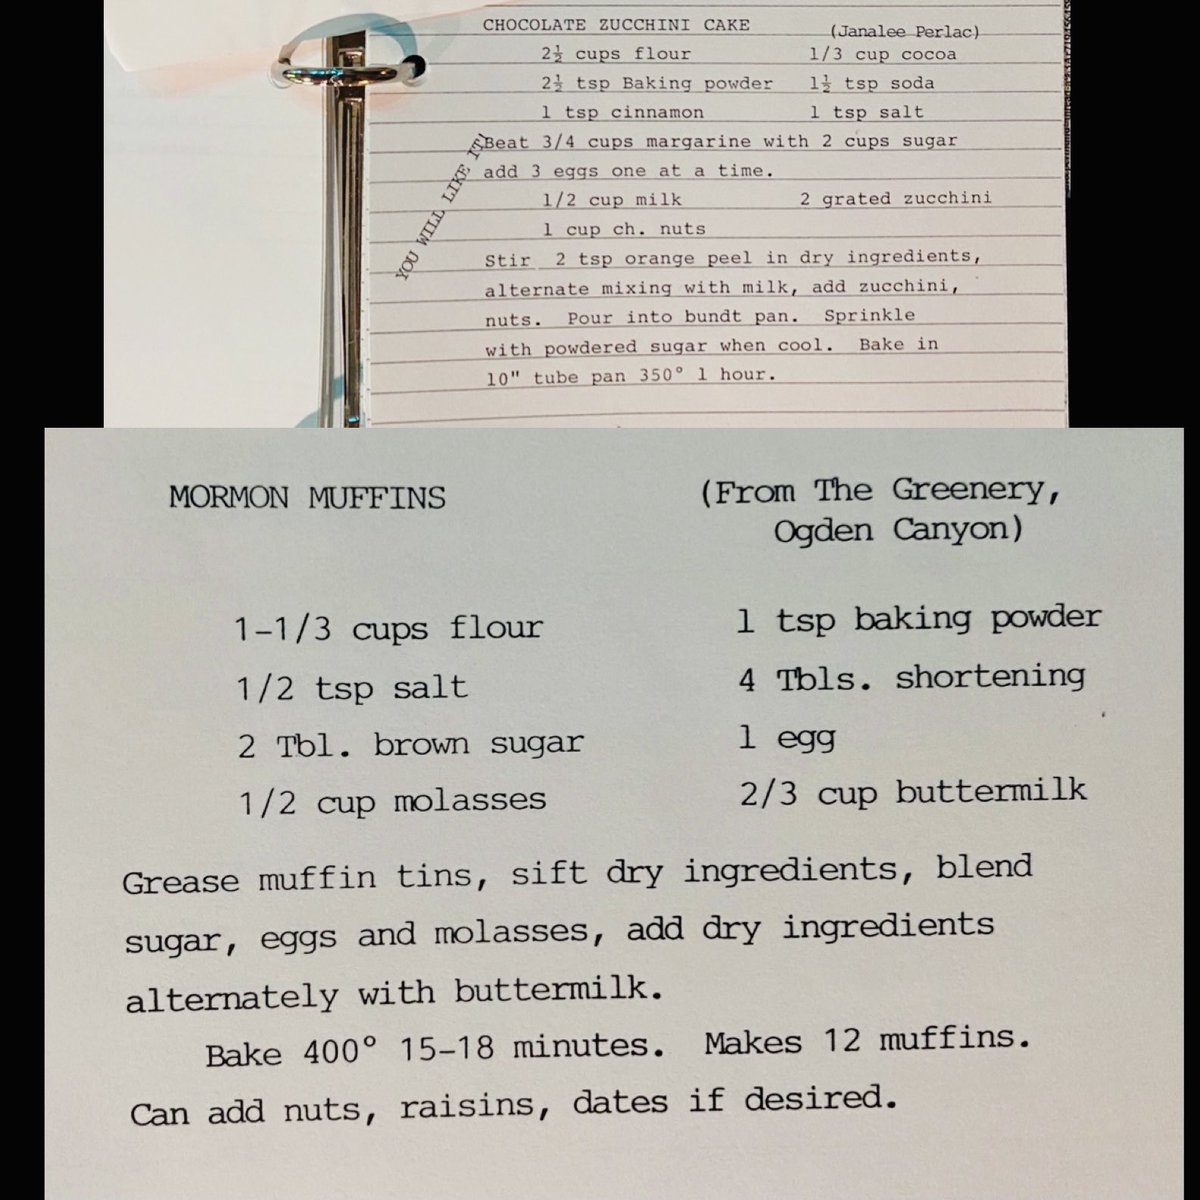 CHOCOLATE ZUCCHINI CAKE (Janalee Perlac)
2½ cups flour 1/3 cup cocoa
2½ tsp Baking powder 1½ tsp soda
1 tsp cinnamon 1 tsp salt
Beat 3/4 cups margarine with 2 cups sugar
add 3 eggs one at a time.
1/2 cup milk 2 grated zucchini
1 cup ch. nuts
Stir 2 tsp orange peel in dry ingredients,
alternate mixing with milk, add zucchini,
nuts. Pour into bundt pan. Sprinkle
with powdered sugar when cool. Bake in
10" tube pan 350° 1 hour.
YOU WILL LIKE IT!
MORMON MUFFINS (From The Greenery,
Ogden Canyon)
1-1/3 cups flour 1 tsp baking powder
1/2 tsp salt 4 Tbls. shortening
2 Tbl. brown sugar 1 egg
1/2 cup molasses 2/3 cup buttermilk
Grease muffin tins, sift dry ingredients, blend
sugar, eggs and molasses, add dry ingredients
alternately with buttermilk.
Bake 400° 15-18 minutes. Makes 12 muffins.
Can add nuts, raisins, dates if desired.